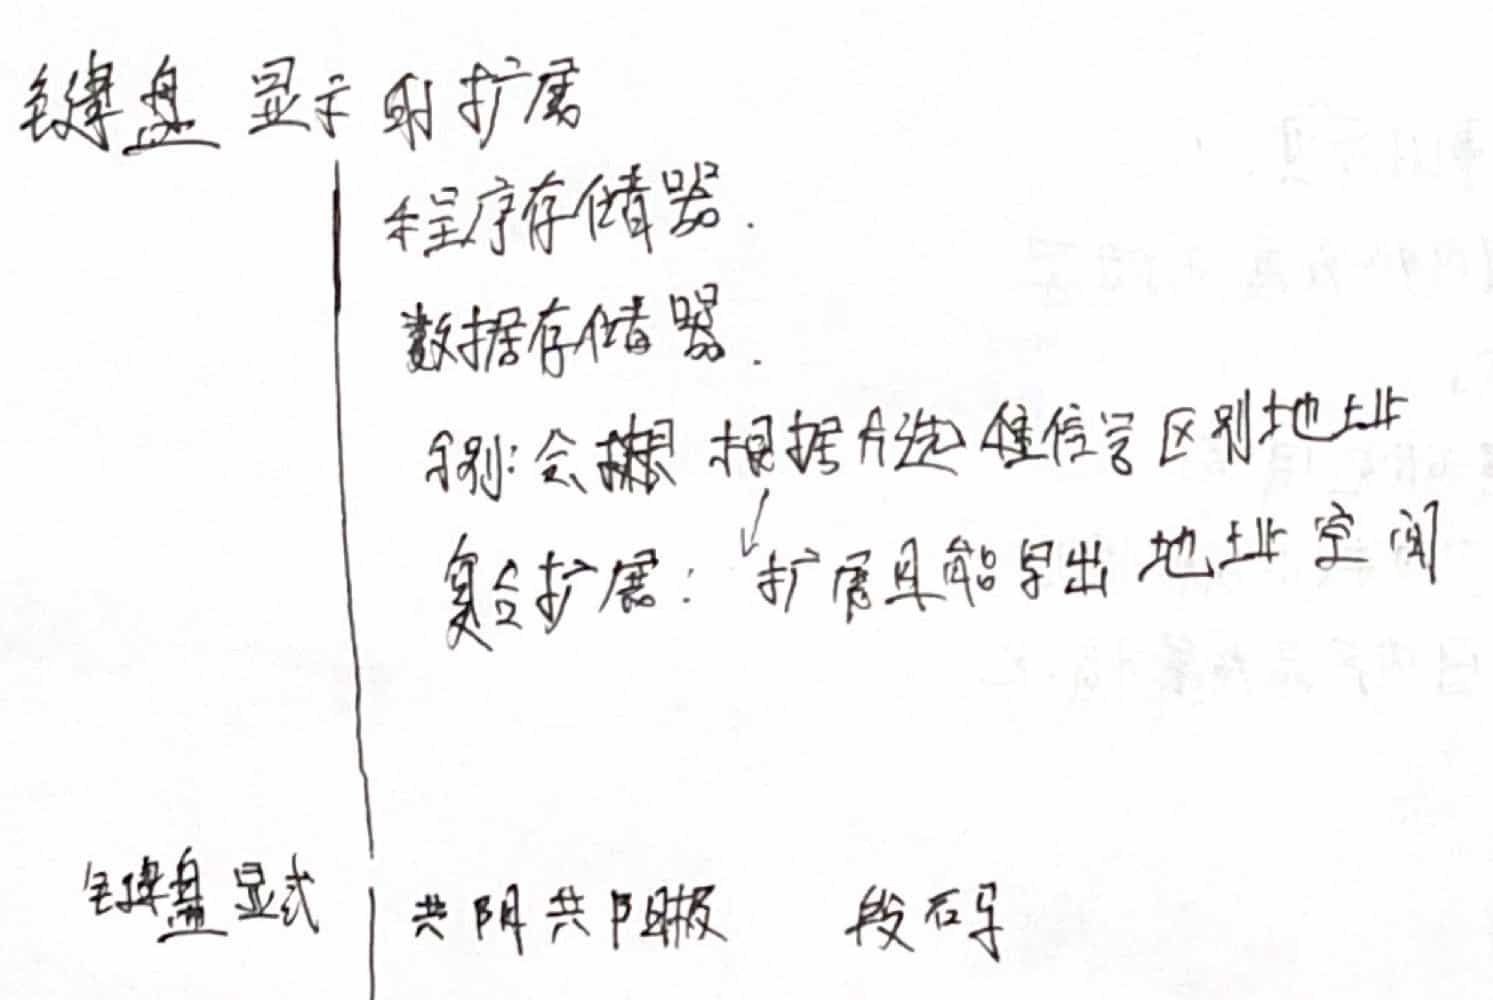 键盘 显示 的扩展
程序存储器.
数据存储器.
别: 会 根据片选 信号区别地址
复合扩展: 扩展且能写出 地址空间
键盘显式 共阴共阳极 段码